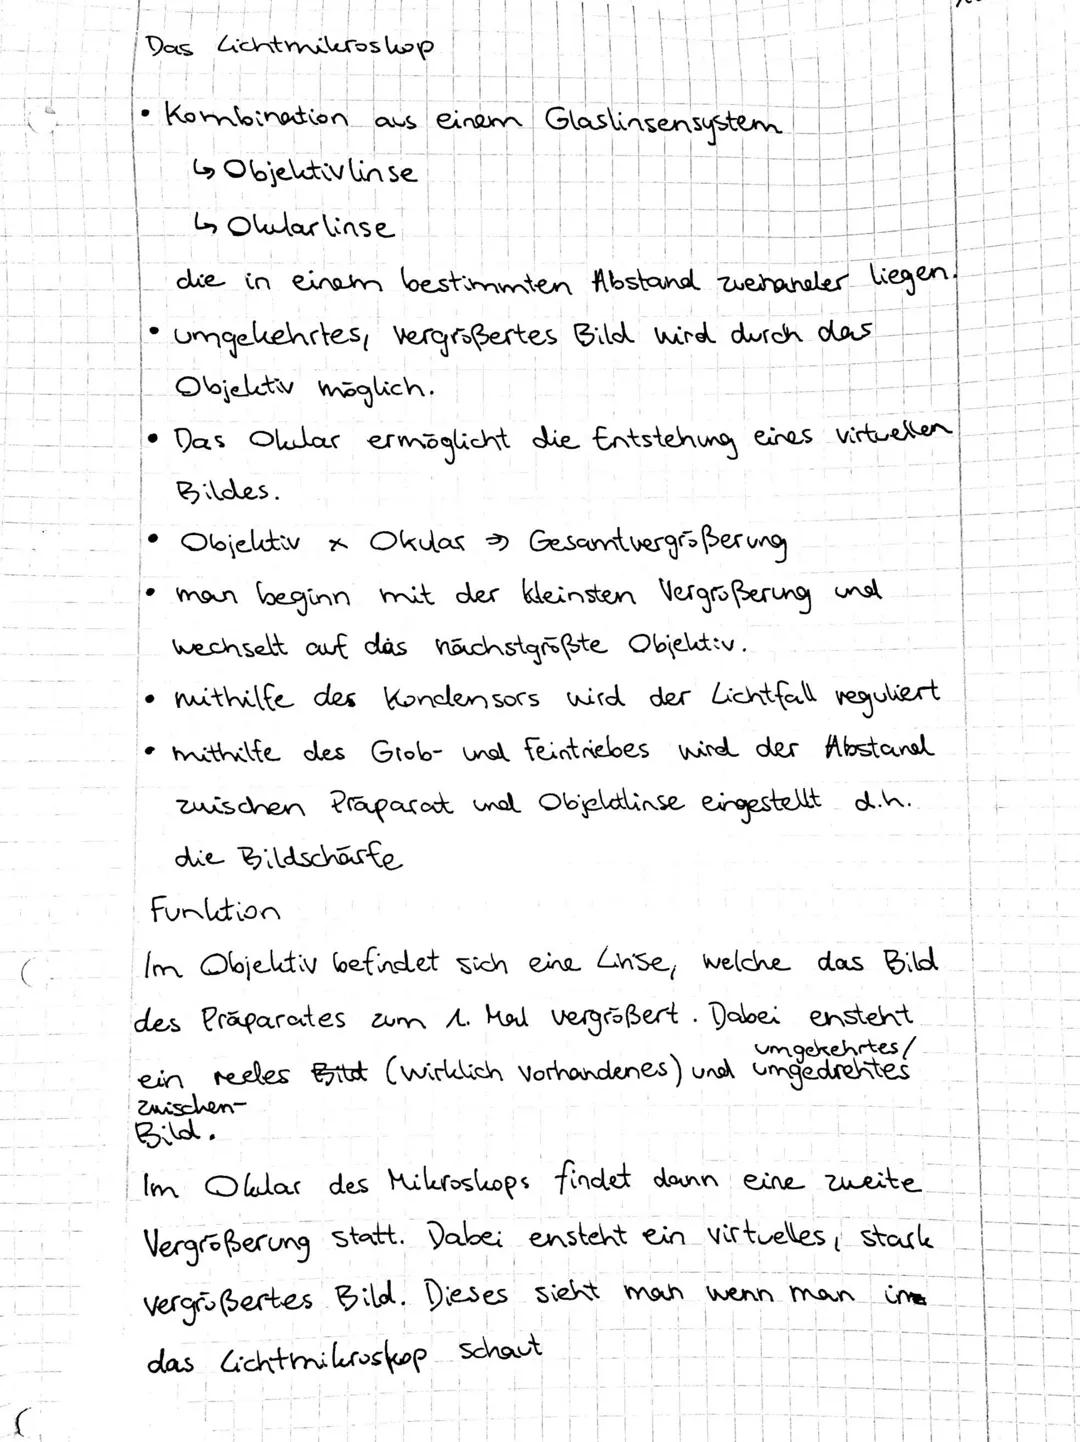 Das Lichtmikroskop
• Kombination aus einem Glaslinsensystem
↳ Objektivlinse
↳ Okularlinse
die in einem bestimmten Abstand zueinander liegen.
• umgekehrtes, vergrößertes Bild wird durch das
Objektiv möglich.
• Das Okular ermöglicht die Entstehung eines virtuellen
Bildes.
• Objektiv x Okular ⇒ Gesamtvergrößerung
• man beginn mit der kleinsten Vergrößerung und
wechselt auf das nächstgrößte Objektiv.
• mithilfe des Kondensors wird der Lichtfall reguliert
• mithilfe des Grob- und Feintriebes wird der Abstand
zwischen Präparat und Objektlinse eingestellt d.h.
die Bildschärfe
Funktion
Im Objektiv befindet sich eine Linse, welche das Bild
des Präparates zum 1. Mal vergrößert. Dabei ensteht
umgekehrtes/
ein reeles Bild (wirklich vorhandenes) und umgedrehtes
zwischen-
Bild.
Im Okular des Mikroskops findet dann eine zweite
Vergrößerung statt. Dabei ensteht ein virtuelles, stark
vergrößertes Bild. Dieses sieht man wenn man in
das Lichtmikroskop schaut